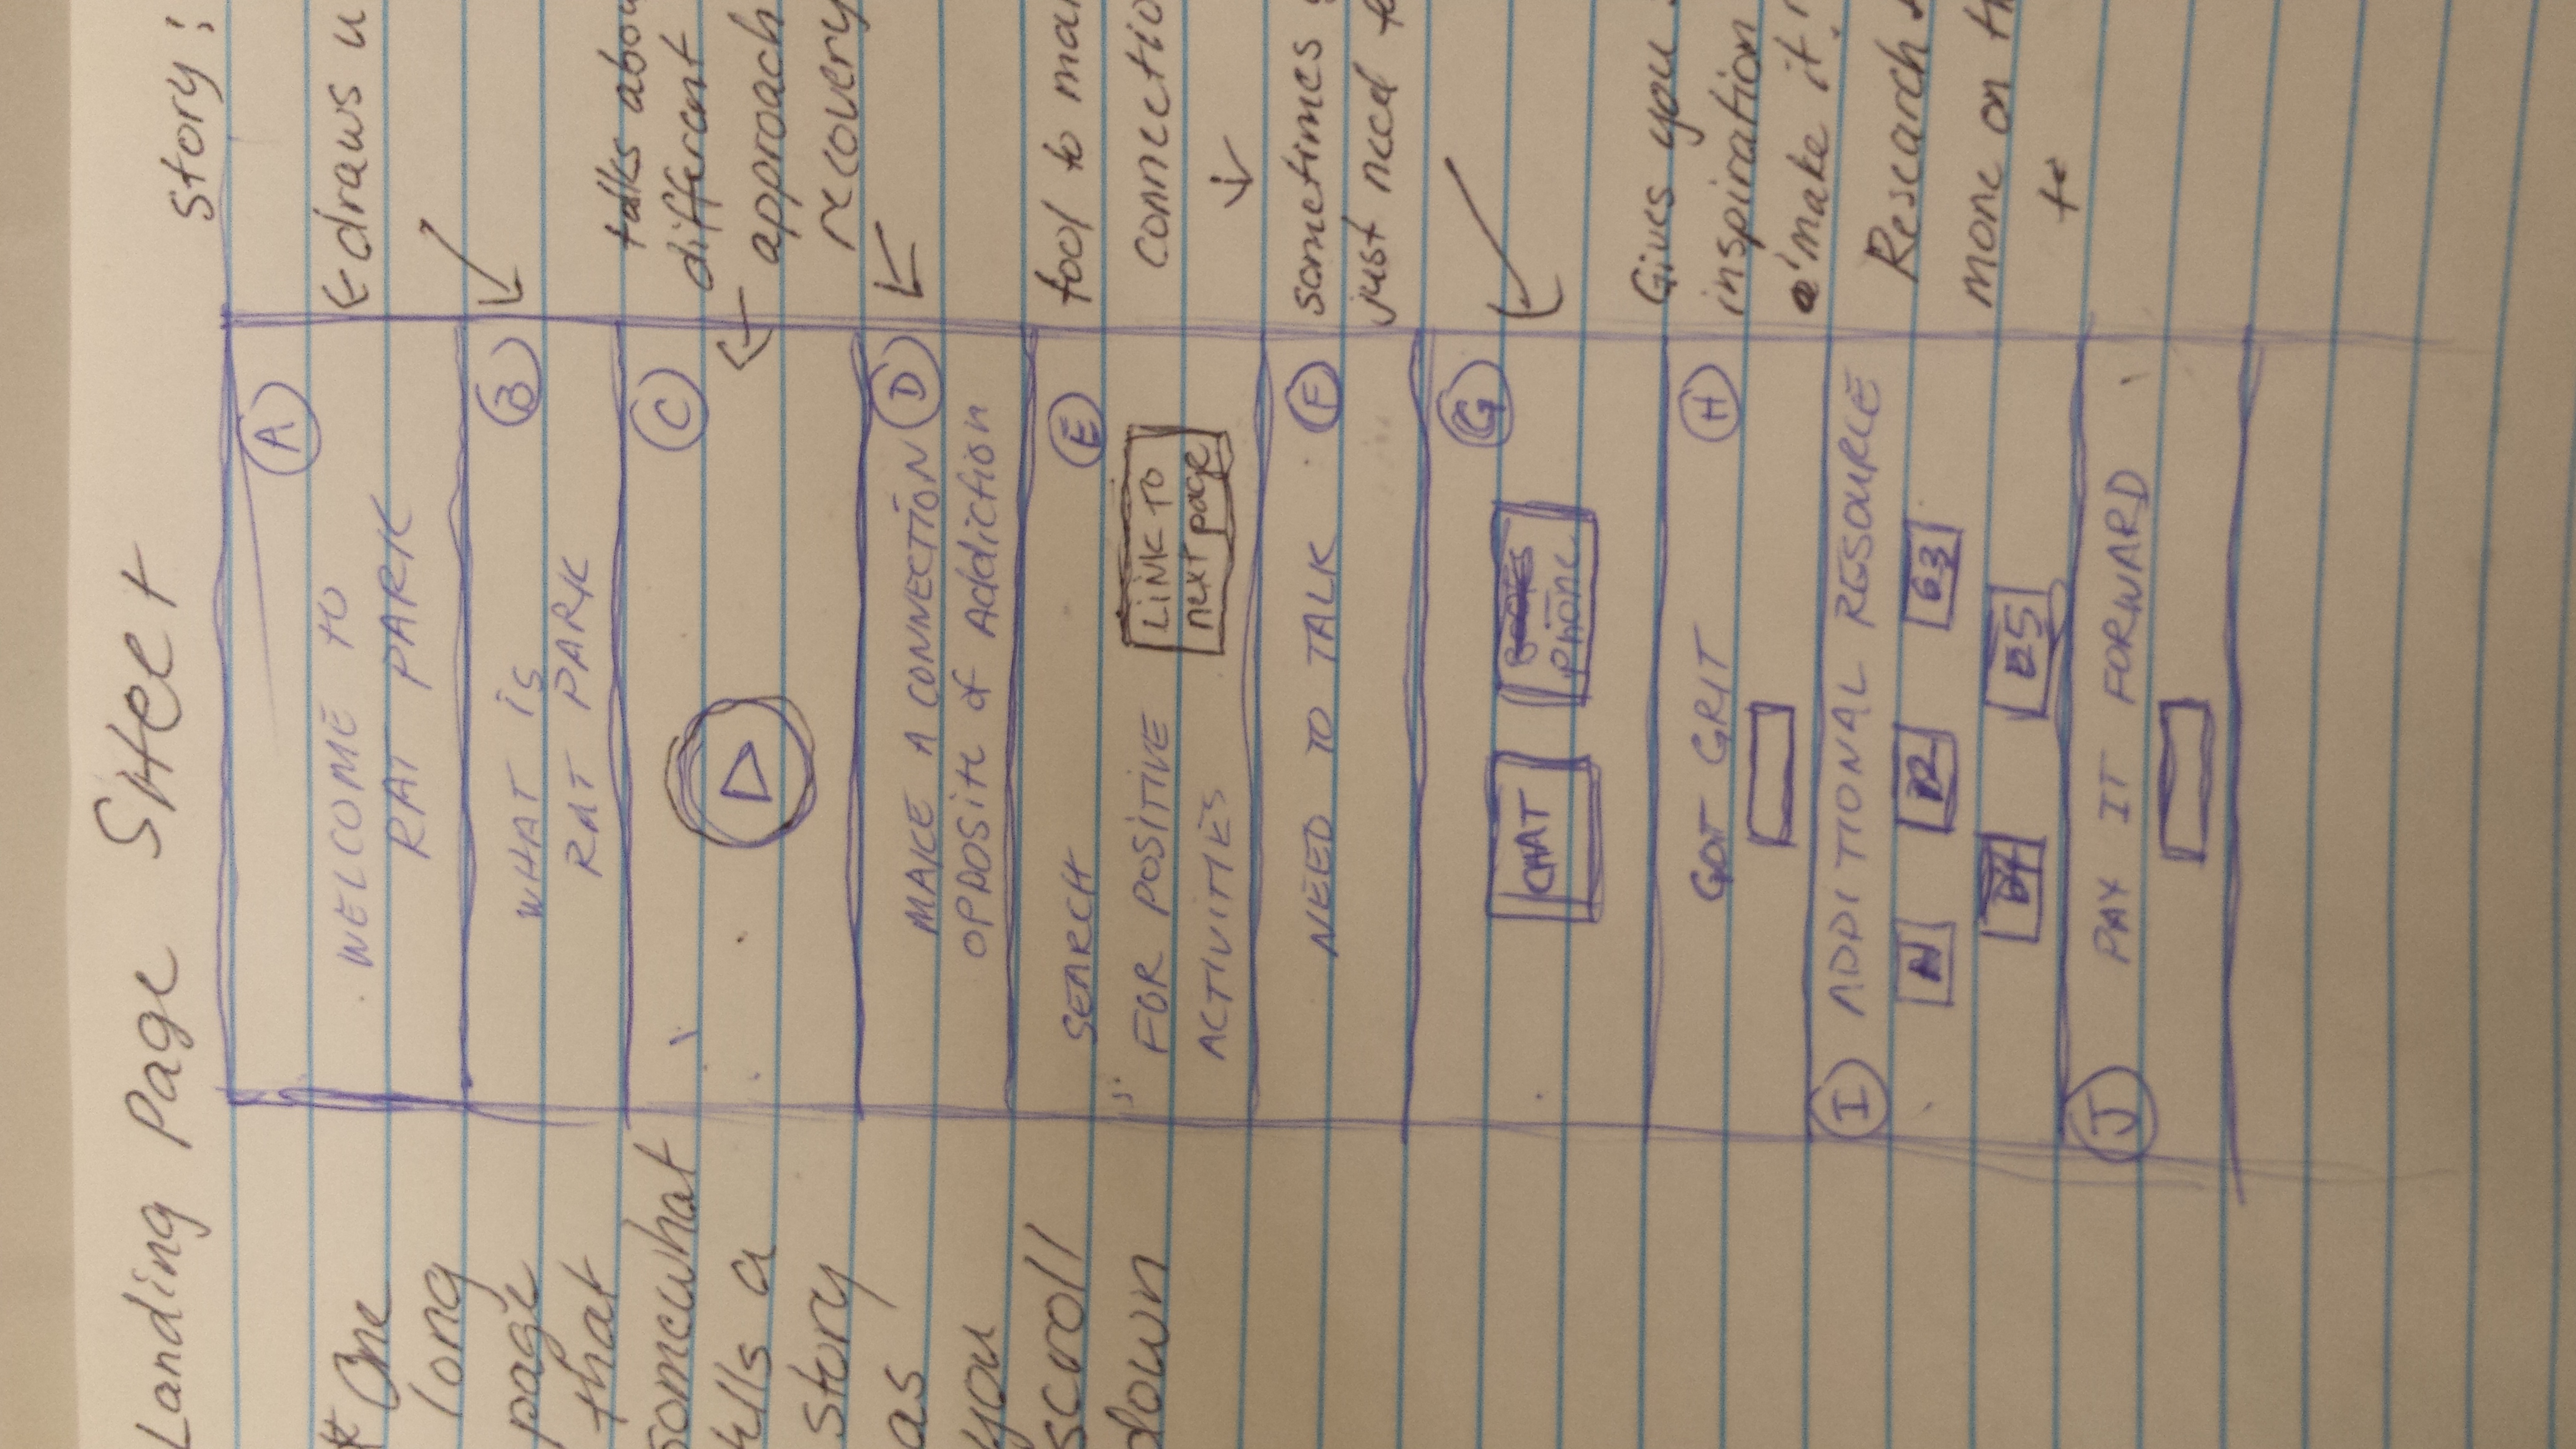 Landing Page SHeet
story:
* One
long
page
that
somewhat
tells a
story
as
you
scroll
down
A
WELCOME TO
RAT PARK
B
WHAT is
RAT PARK
C
D
MAKE A CONNECTION
OPPOSite of Addiction
E
SEARCH
FOR POSITIVE
ACTIVITIES
LiNK TO
next page
F
NEED TO TALK
G
CHAT
Phone
H
GOT GRIT
I
ADDITIONAL RESOURCE
J
PAY IT FORWARD
draws u
talks abou
different
approach
recovery
tool to ma
connectio
sometimes
just need
Gives you
inspiration
'make it!
Research
more on
to